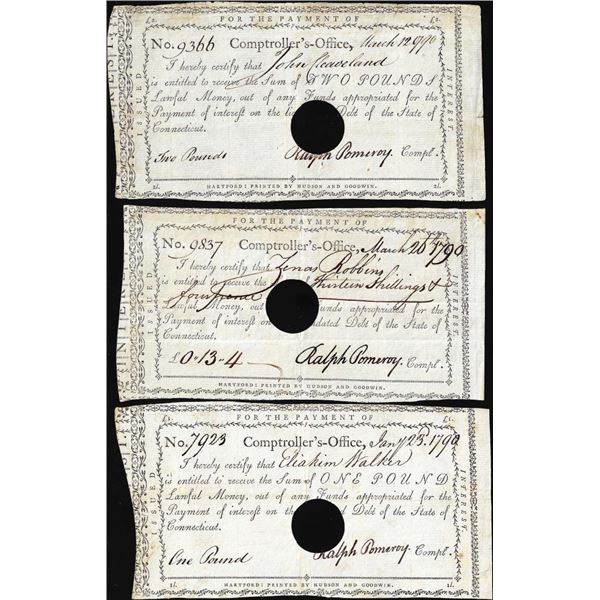 FOR THE PAYMENT OF
£2. £2.
No. 9366 Comptroller's-Office, March 12 1790
I hereby certify that John Cleaveland
is entitled to receive the Sum of TWO POUNDS
Lawful Money, out of any Funds appropriated for the
Payment of interest on the Debt of the State of
Connecticut.
Two Pounds Ralph Pomeroy Compt.
HARTFORD: PRINTED BY HUDSON AND GOODWIN.
2l. 2l.
ISSUED
INTEREST
FOR THE PAYMENT OF
No. 9837 Comptroller's-Office, March 26th 1790
I hereby certify that Zenas Robbins
is entitled to receive the Thirteen Shillings &
fourpence
Lawful Money, out of Funds appropriated for the
Payment of interest on dated Debt of the State of
Connecticut.
£0-13-4 Ralph Pomeroy. Compt.
HARTFORD: PRINTED BY HUDSON AND GOODWIN.
ISSUED
INTEREST
FOR THE PAYMENT OF
£1.
No. 7923 Comptroller's-Office, Jany 25th 1790
I hereby certify that Eliakim Walker
is entitled to receive the Sum of ONE POUND
Lawful Money, out of any Funds appropriated for the
Payment of interest on the Debt of the State of
Connecticut.
One Pound Ralph Pomeroy Compt.
HARTFORD: PRINTED BY HUDSON AND GOODWIN.
1l. 1l.
ISSUED
INTEREST